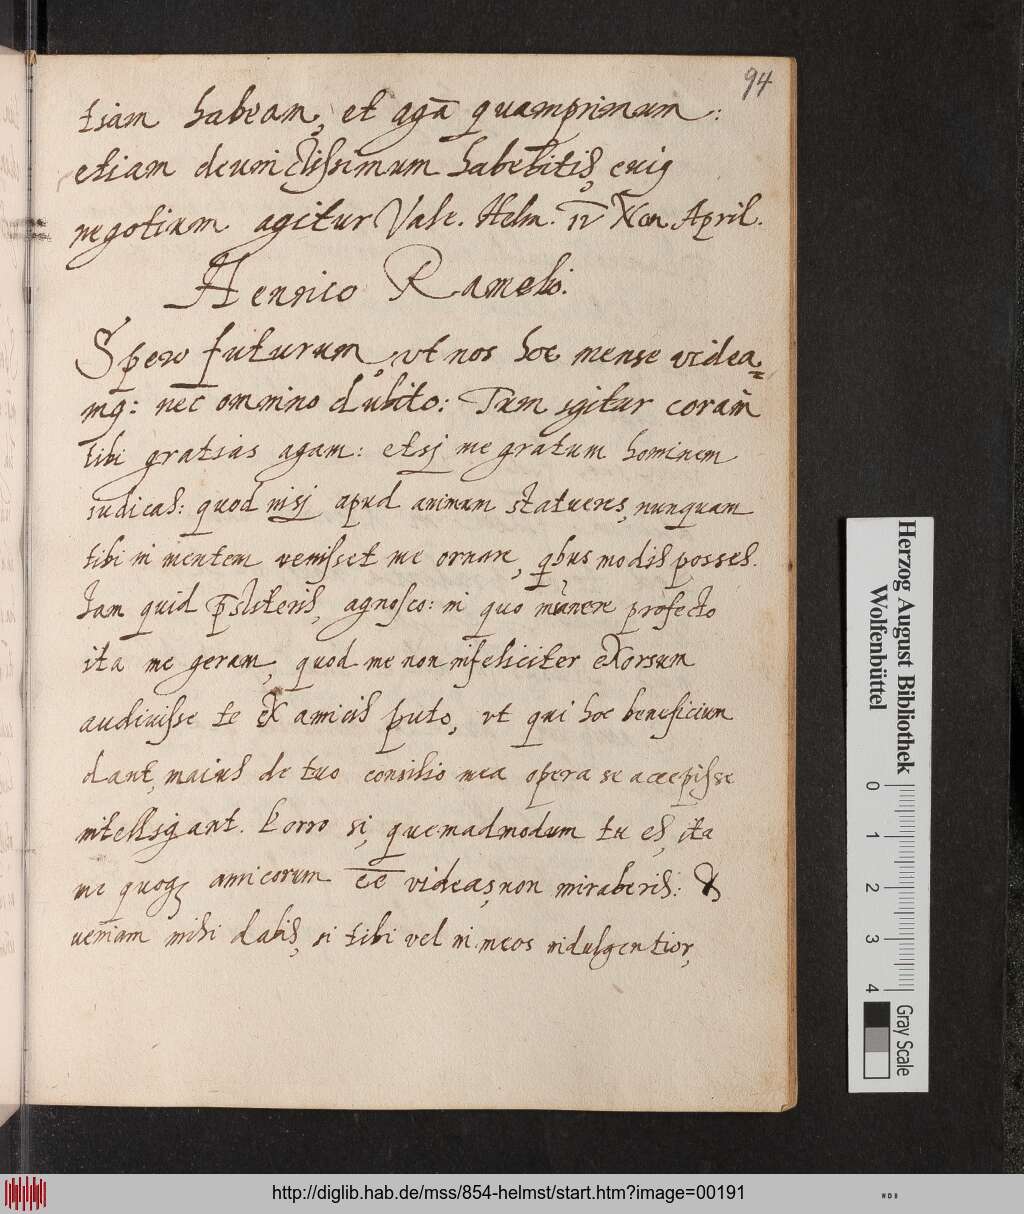 94
tiam habeam, et agā quamprimum:
etiam devinctissimum habebitis, cuiq
negotium agitur Vale. Helm. IV Kon. April.
Henrico Ramelio.
Spero futurum, vt nos hoc mense videa=
mq: nec omnino dubito: Tum igitur coram
tibi gratias agam: etsj me gratum hominem
iudicas: quod nisj apud animum statueres, nunquam
tibi in mentem venisset me ornare, qbus modis posses.
Jam quid p̄stiteris, agnosco: in quo munere profecto
ita me geram, quod me non infeliciter exorsum
audivisse te ex amicis puto, vt qui hoc beneficium
dant, maius de tuo consilio mea opera se accepisse
intelligant. Porro si, quemadmodum tu es, ita
me quoq amicorum ēē videas, non miraberis: &
veniam mihi dabis, si tibi vel in meos indulgentior,
Herzog August Bibliothek
Wolfenbüttel
0 1 2 3 4
Gray Scale
http://diglib.hab.de/mss/854-helmst/start.htm?image=00191
WDB